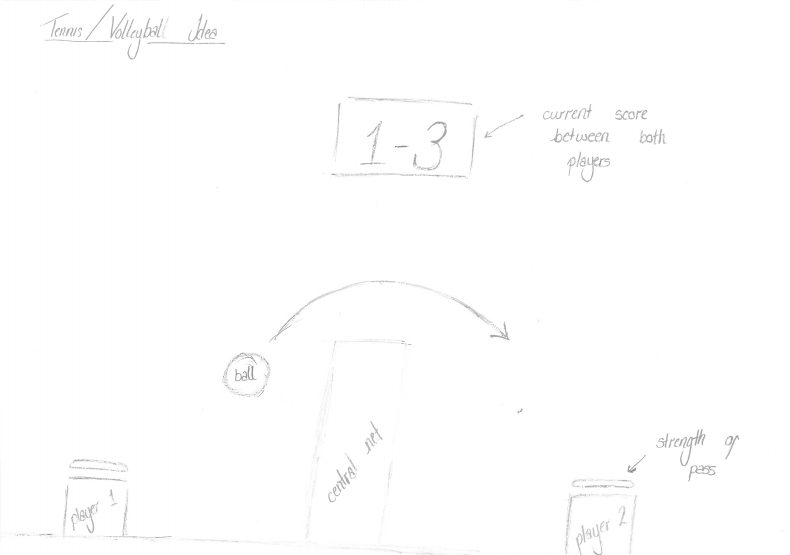 Tennis/Volleyball Idea
1-3
current score
between both
players
ball
central net
strength of
pass
player 1
player 2